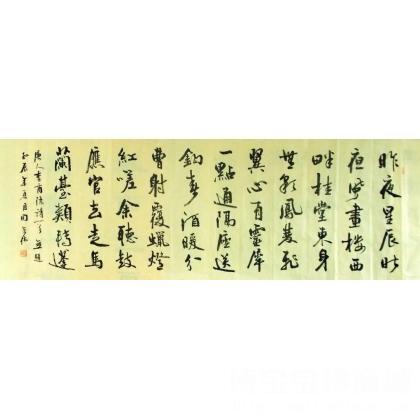 昨夜星辰昨
夜風畫樓西
畔桂堂東身
無彩鳳雙飛
翼心有靈犀
一點通隔座送
鉤春酒暖分
曹射覆蠟燈
紅嗟余聽鼓
應官去走馬
蘭臺類轉蓬
唐人李商隱詩一首